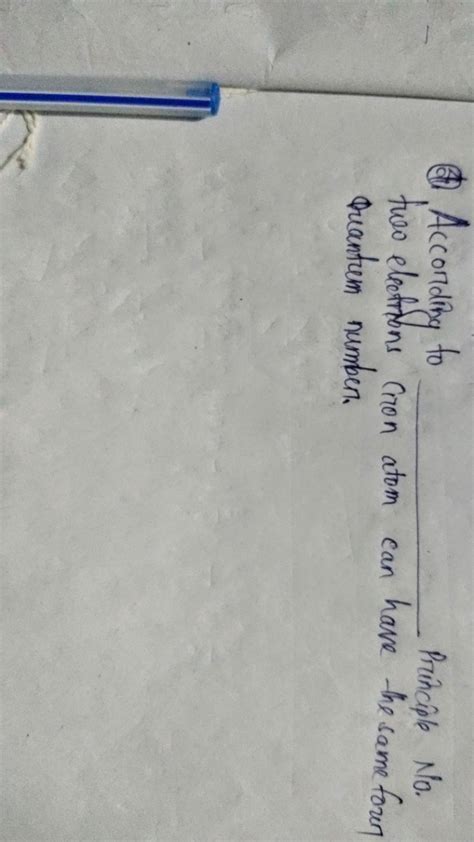 According to ________ Principle No.
two electrons atom can have the same four
Quantum number.